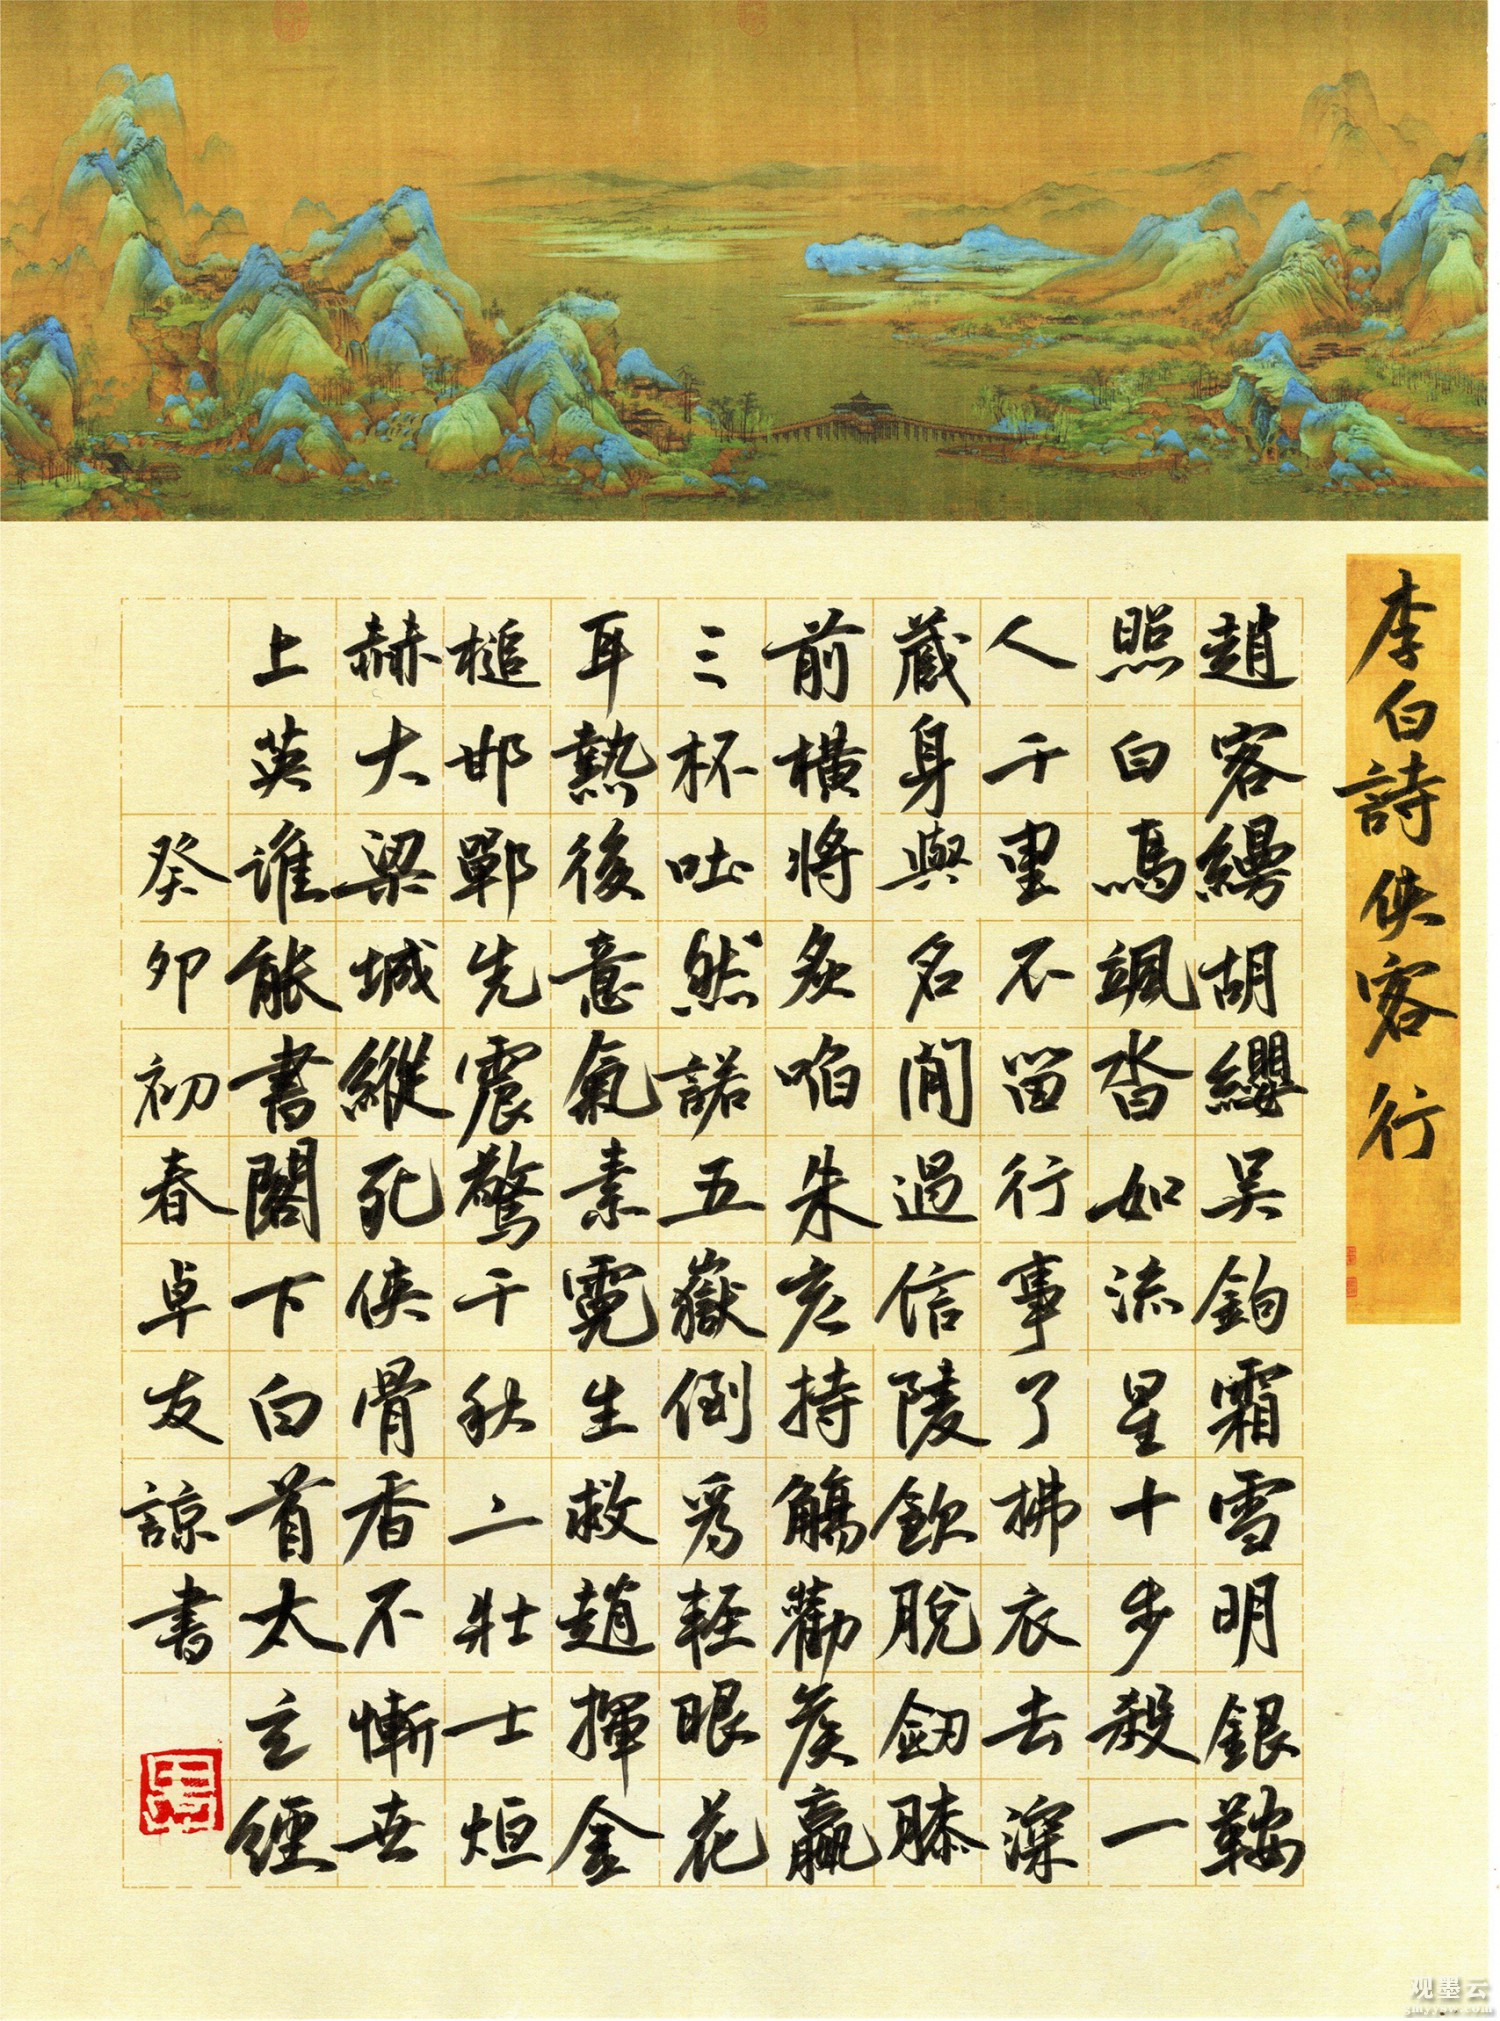 李白詩俠客行
趙客縵胡纓吳鉤霜雪明銀鞍
照白馬颯沓如流星十步殺一
人千里不留行事了拂衣去深
藏身與名閒過信陵飲脫劍膝
前橫將炙啗朱亥持觴勸侯嬴
三杯吐然諾五嶽倒為輕眼花
耳熱後意氣素霓生救趙揮金
槌邯鄲先震驚千秋二壯士烜
赫大梁城縱死俠骨香不慚世
上英誰能書閣下白首太玄經
癸卯初春卓友諒書
观墨云